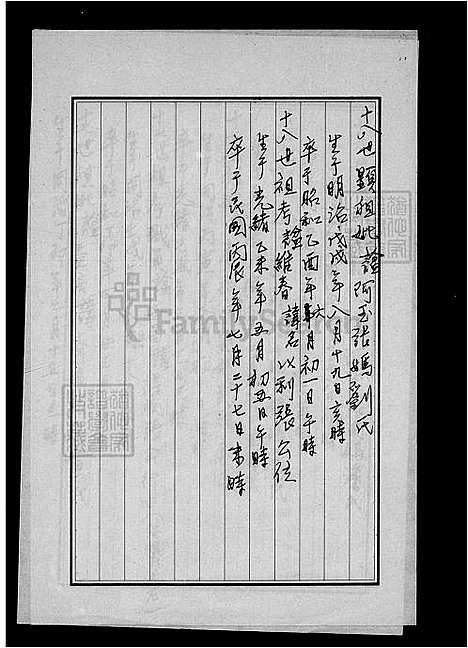 十八世顯祖妣諡阿玉張媽劉氏
生于明治戊戌年八月十九日亥時
卒于昭和乙酉年六月初一日午時
十八世祖考諡維春諱名以利張公位
生于光緒乙未年五月初五日午時
卒于民國丙辰年七月二十七日未時
FamilySearch